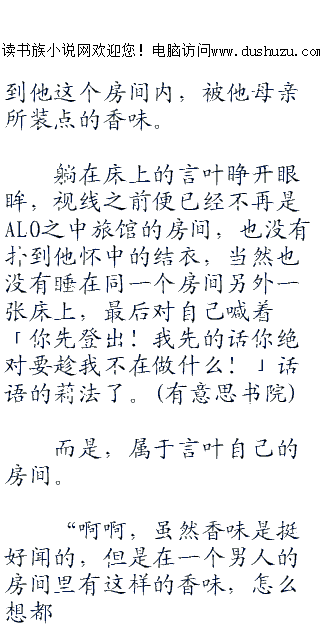 读书族小说网欢迎您！电脑访问www.dushuzu.com
到他这个房间内，被他母亲
所装点的香味。
躺在床上的言叶睁开眼
眸，视线之前便已经不再是
ALO之中旅馆的房间，也没有
扑到他怀中的结衣，当然也
没有睡在同一个房间另外一
张床上，最后对自己喊着
「你先登出！我先的话你绝
对要趁我不在做什么！」话
语的莉法了。(有意思书院)
而是，属于言叶自己的
房间。
“啊啊，虽然香味是挺
好闻的，但是在一个男人的
房间里有这样的香味，怎么
想都